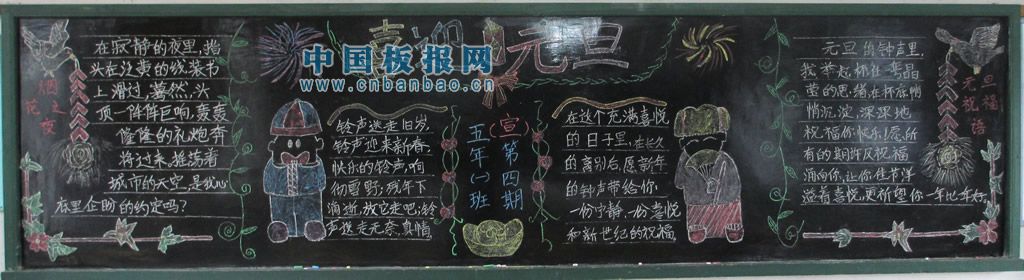 喜迎元旦
中国板报网
www.cnbanbao.cn
烟花之夜
在寂静的夜里,指
头在泛黄的线装书
上滑过,蓦然,头
顶一阵阵巨响,轰轰
隆隆的礼炮奔
将过来,摇荡着
城市的天空,是我心
底里企盼的约定吗?
铃声送走旧岁,
铃声迎来新春,
快乐的铃声,响
彻雪野;残年下
消逝,放它走吧;铃
声送走无奈,真情,
(宣)第四期
五年(一)班
在这个充满喜悦
的日子里,在长久
的离别后,愿新年
的钟声带给你:
一份宁静,一份喜悦
和新世纪的祝福。
元旦祝福语
元旦的钟声里,
我举起杯,在晶
莹的思绪,在杯底悄
悄沉淀,深深地
祝福你快乐!愿所
有的期许及祝福
涌向你,让你佳节洋
溢着喜悦,更祈望你一年比年好。